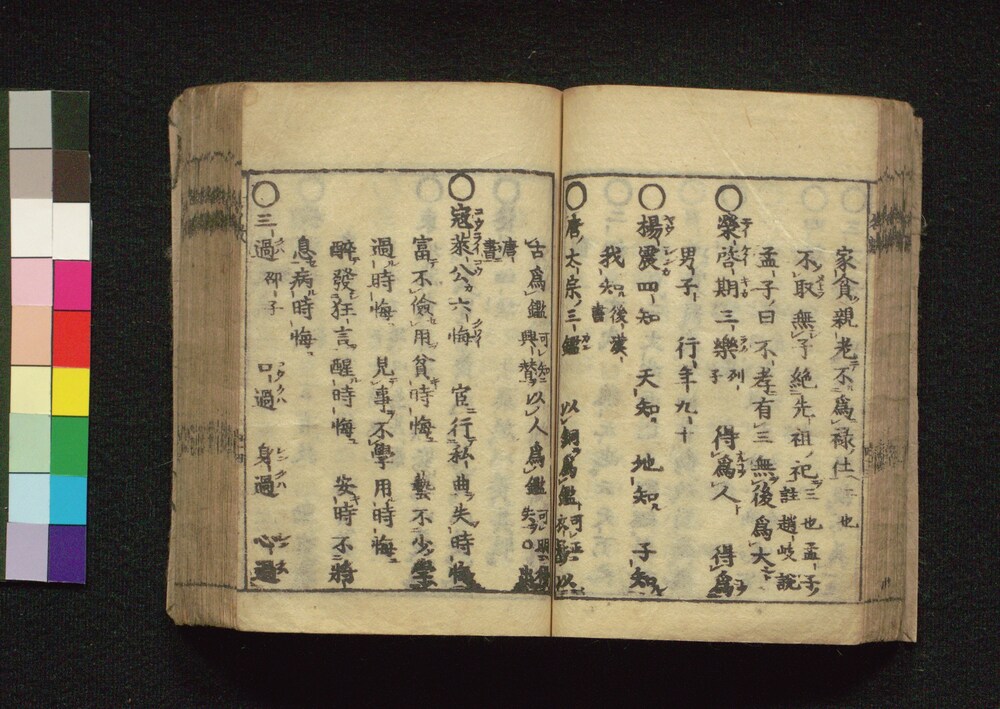 家貧親老不爲祿仕二也
不取無子絶先祖祀三也孟子
註趙岐說
孟子曰不孝有三無後爲大
○榮啓期三樂列子 得爲人 得爲
男子 行年九十
○楊震四知 天知 地知 子知
我知後漢書
○唐太宗三鑑 以銅爲鑑可正衣冠以
古爲鑑可知興替以人爲鑑可明得失○唐
書
○寇萊公六悔 官行私曲失時悔
富不儉用貧時悔 藝不少學
過時悔 見事不學用時悔
醉發狂言醒時悔 安時不將
息病時悔
○三過邵子 口過 身過 心過